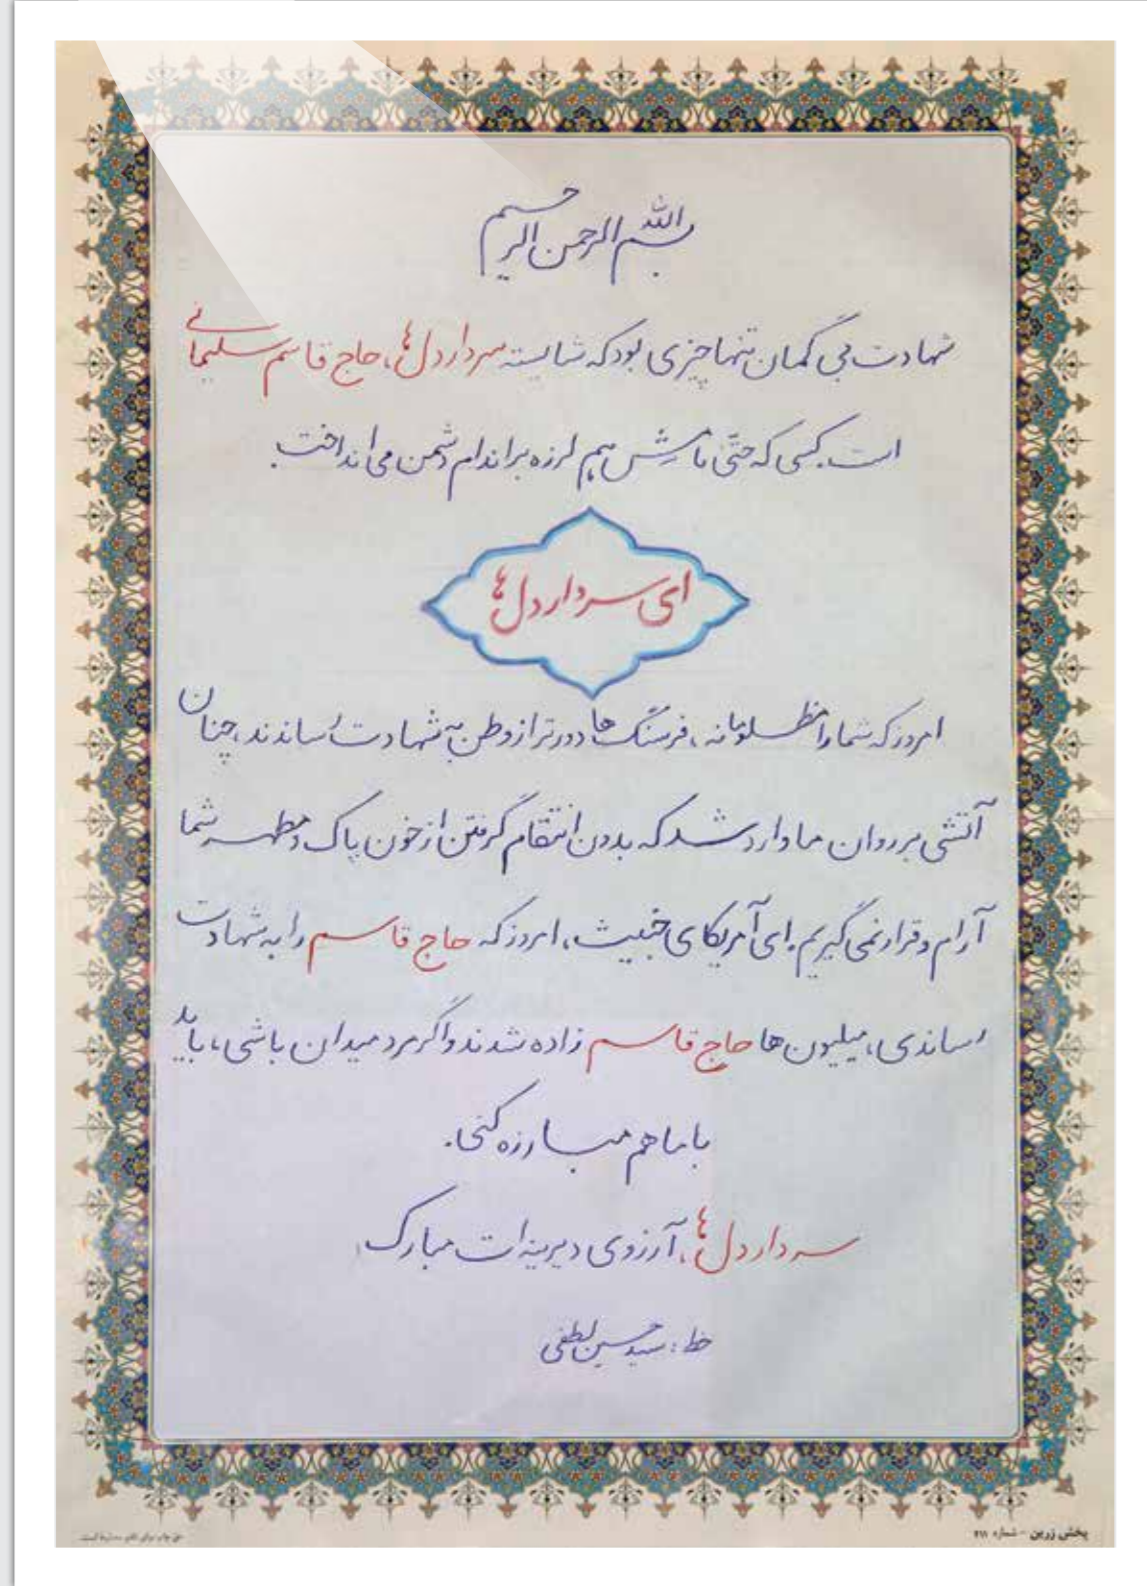 بسم الله الرحمن الرحیم
شهادت بی گمان تنها چیزی بود که شایسته سردار دل‌ها، حاج قاسم سلیمانی
است. کسی که حتّی نامش هم لرزه بر اندام دشمن می‌انداخت.
ای سردار دل‌ها
امروز که شما را مظلومانه، فرسنگ‌ها دورتر از وطن به شهادت رساندند، چنان
آتشی بر روان ما وارد شد که بدون انتقام گرفتن از خون پاک و مطهر شما
آرام و قرار نمی‌گیریم. ای آمریکای خبیث، امروز که حاج قاسم را به شهادت
رساندی، میلیون‌ها حاج قاسم زاده شدند و اگر مرد میدان باشی، باید
با ما هم مبارزه کنی.
سردار دل‌ها، آرزوی دیرینه‌ات مبارک
خط: سید حسین لطفی
پخش زرین - شماره ۲۱۱